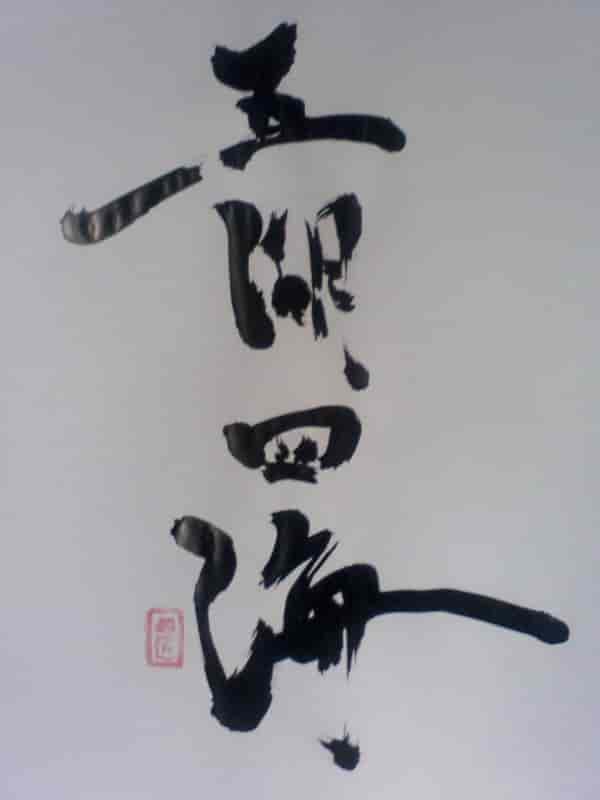 五湖四海